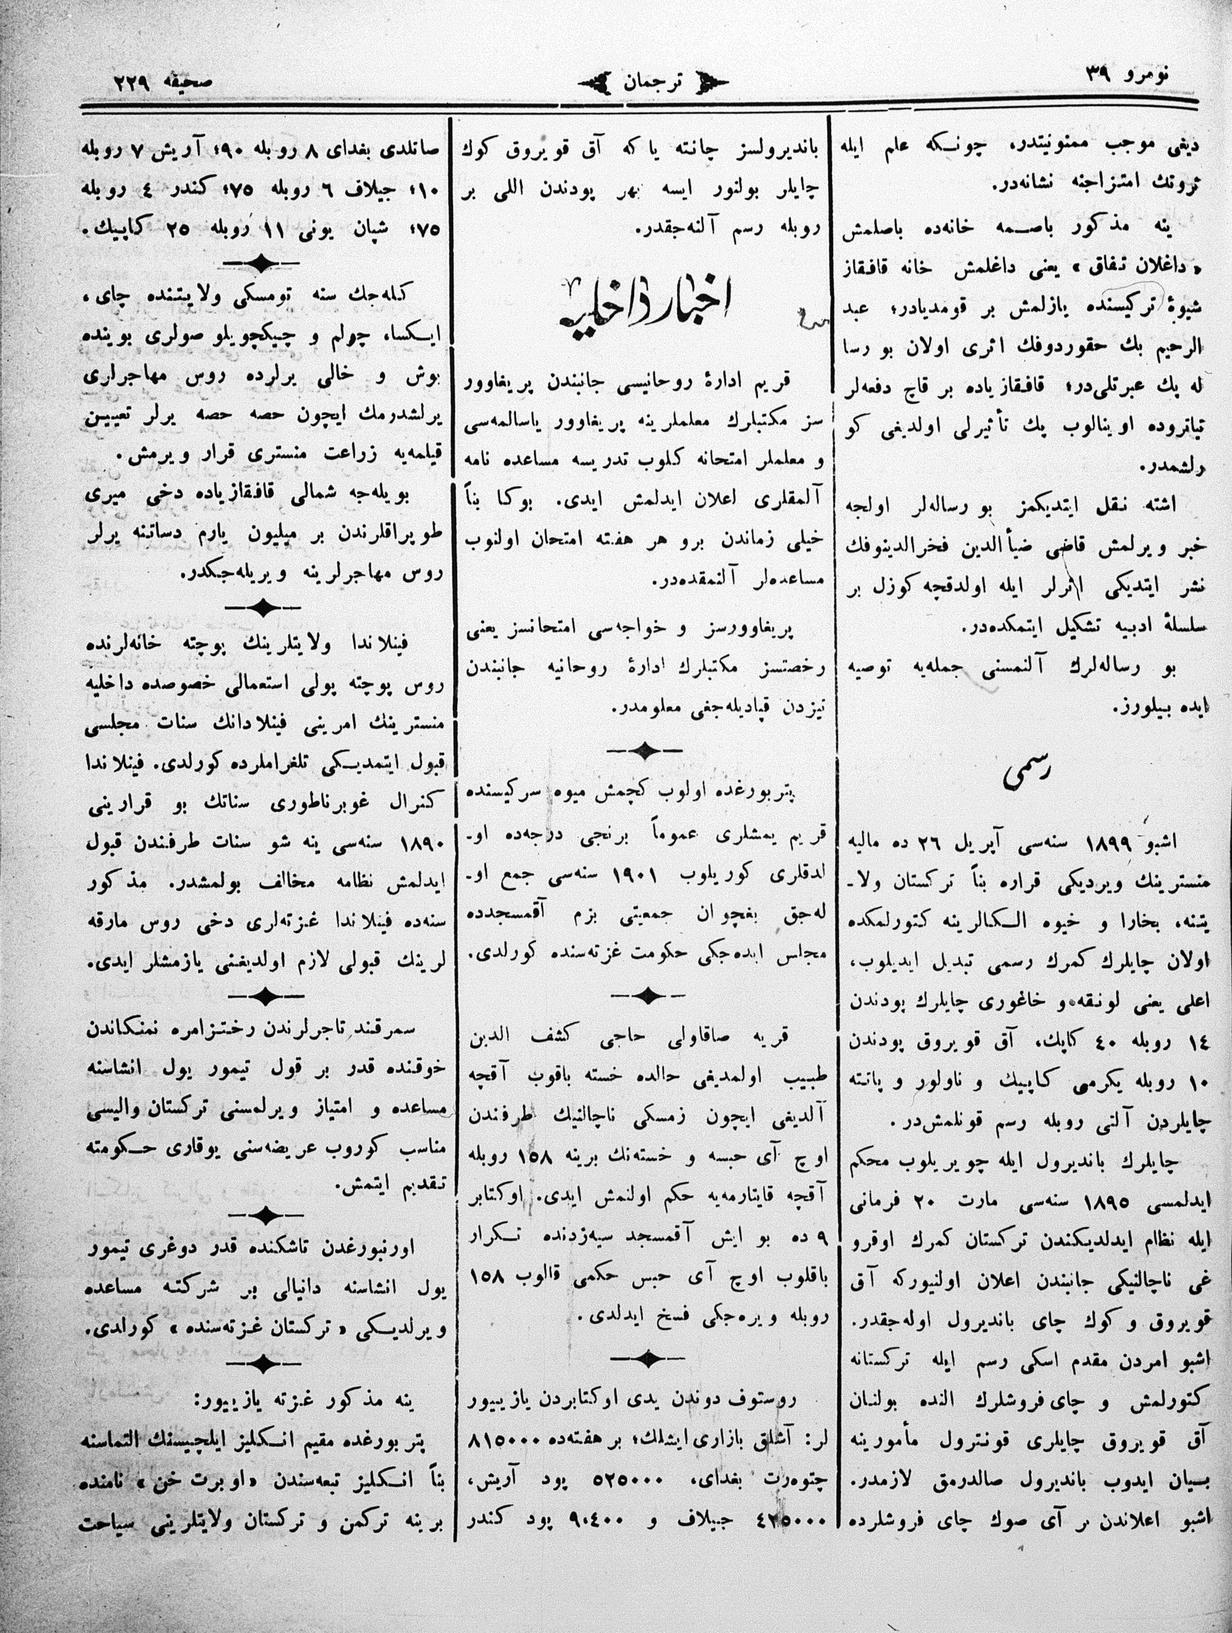 نومرو ٣٩
ترجمان
صحیفه ٢٢٩
دیغی موجب ممنونیتدر، چونـکه علم ایله
ثروتك امتزاجنه نشانه‌در.
ینه مذکور باصـمه خانه‌ده باصلمش
«داغلان تفاق» یعنی داغلمش خانه قافقاز
شیوۀ ترکیسنده یازلمش بر قومدیادر؛ عبد
الرحیم بك حقوردوفك اثری اولان بو رسا
له پك عبرتلی‌در؛ قافقازیاده بر قاچ دفعه‌لر
تیاتروده اوینالوب پك تأثیرلی اولدیغی کو
رلشمدر.
اشته نقل ایتدیکمز بو رساله‌لر اولجه
خبر ویرلمش قاضی ضیأالدین فخرالدینوفك
نشر ایتدیکی اثرلر ایله اولدقچه کوزل بر
سلسلۀ ادبیه تشکیل ایتمکده‌در.
بو رساله‌لرك آلنمسنی جمله‌یه توصیه
ایده بیلورز.
رسمی
اشبو ١٨٩٩ سنه‌سی آپریل ٢٦ ده مالیه
منسترینك ویردیکی قراره بنأً ترکستان ولا-
یتنه، بخارا و خیوه الـکالرینه کتورلمکده
اولان چایلرك کمرك رسمی تبدیل ایدیلوب،
اعلی یعنی لونقه و خاغوری چایلرك پودندن
١٤ روبله ٤٠ کاپك، آق قویروق پودندن
١٠ روبله یکرمی کاپیك و ناولور و پانته
چایلردن آلتی روبله رسم قونلمش‌در.
چایلرك باندیرول ایله چویریلوب محکم
ایدلمسی ١٨٩٥ سنه‌سی مارت ٢٠ فرمانی
ایله نظام ایدلدیکندن ترکستان کمرك اوقرو
غی ناچالنیکی جانبندن اعلان اولنیورکه آق
قویروق و کوك چای باندیرول اوله‌جقدر.
اشبو امردن مقدم اسکی رسم ایله ترکستانه
کتورلمش و چای‌فروشلرك النده بولنان
آق قویروق چایلری قونترول مأمورینه
بیان ایدوب باندیرول صالدرمق لازمدر.
اشبو اعلاندن بر آی صوك چای فروشلرده
باندیرولسز چانته یاکه آق قویروق کوك
چایلر بولنور ایسه بهر پودندن اللی بر
روبله رسم آلنه‌جقدر.
اخبار داخلیه
قریم ادارۀ روحانیسی جانبندن پریغاوور
سز مکتبلرك معلملرینه پریغاوور یاسالمه‌سی
و معلملر امتحانه کلوب تدریسه مساعده نامه
آلمقلری اعلان ایدلمش ایدی. بوکا بنأً
خیلی زماندن برو هر هفته امتحان اولنوب
مساعده‌لر آلنمقده‌در.
پریغاوورسز و خواجه‌سی امتحانسز یعنی
رخصتسز مکتبلرك ادارۀ روحانیه جانبندن
تیزدن قپادیله‌جغی معلومدر.
پتربورغده اولوب کچمش میوه سرکیسنده
قریم یمشلری عموماً برنجی درجه‌ده او-
لدقلری کوریلوب ١٩٠١ سنه‌سی جمع او-
له‌جق بغچوان جمعیتی بزم آقمسجدده
مجلس ایده‌جکی حکومت غزته‌سنده کورلدی.
قریه صاقاولی حاجی کشف الدین
طبیب اولمدیغی حالده خسته باقوب آقچه
آلدیغی ایچون زمسکی ناچالنیك طرفندن
اوچ آی حبسه و خسته‌نك برینه ١٥٨ روبله
آقچه قایتارمه‌یه حکم اولنمش ایدی. اوکتابر
٩ ده بو ایش آقمسجد سیه‌زدنده تـکرار
باقلوب اوچ آی حبس حکمی قالوب ١٥٨
روبله ویره‌جکی فسخ ایدلدی.
روستوف دوندن یدی اوکتابردن یازییور
لر: آشلق بازاری ایشلك؛ بر هفته‌ده ٨١٥٠٠٠
چتوه‌رت بغدای، ٥٢٥٠٠٠ پود آریش،
٤٢٥٠٠٠ جیلاف و ٩٠٤٠٠ پود کندر
صاتلدی بغدای ٨ روبله ٩٠؛ آریش ٧ روبله
١٠؛ جیلاف ٦ روبله ٧٥؛ کندر ٤ روبله
٧٥؛ شپان یونی ١١ روبله ٢٥ کاپیك.
کله‌جك سنه تومسکی ولایتنده چای،
ایـکسا، چولم و چیکچویلو صولری بوینده
بوش و خالی یرلرده روس مهاجرلری
یرلشدرمك ایچون حصه حصه یرلر تعیین
قیلمه‌یه زراعت منستری قرار ویرمش.
بویله‌جه شمالی قافقازیاده دخی میری
طوپراقلرندن بر میلیون یارم دساتنه یرلر
روس مهاجرلرینه ویریله‌جکدر.
فینلاندا ولایتلرینك پوچته خانه‌لرنده
روس پوچته پولی استعمالی خصوصده داخلیه
منسترینك امرینی فینلادانك سنات مجلسی
قبول ایتمدیـکی تلغراملرده کورلدی. فینلاندا
کنرال غوبرناطوری سناتك بو قرارینی
١٨٩٠ سنه‌سی ینه شو سنات طرفندن قبول
ایدلمش نظامه مخالف بولمشدر. مذکور
سنه‌ده فینلاندا غزته‌لری دخی روس مارقه
لرینك قبولی لازم اولدیغنی یازمشلر ایدی.
سمرقند تاجرلرندن رختزامره نمنکاندن
خوقنده قدر بر قول تیمور یول انشاسنه
مساعده و امتیاز ویرلمسنی ترکستان والیسی
مناسب کوروب عریضه‌سنی یوقاری حـکومته
تقدیم ایتمش.
اورنبورغدن تاشکنده قدر دوغری تیمور
یول انشاسنه دانیالی بر شرکته مساعده
ویرلدیـکی «ترکستان غزته‌سنده» کورلدی.
ینه مذکور غزته یازییور:
پتربورغده مقیم انـکلیز ایلچیسنك التماسنه
بنأً انـکلیز تبعه‌سندن «اوبرت خن» نامنده
برینه ترکمن و ترکستان ولایتلرینی سیاحت